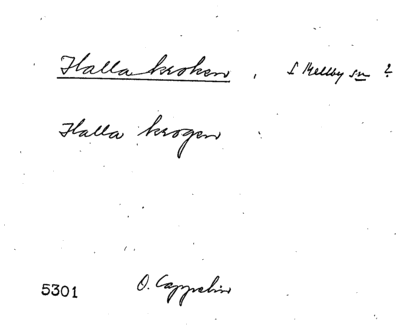 Halla kroken, S Mellby sn ?
Halla krogen
5301 O. Cappelin